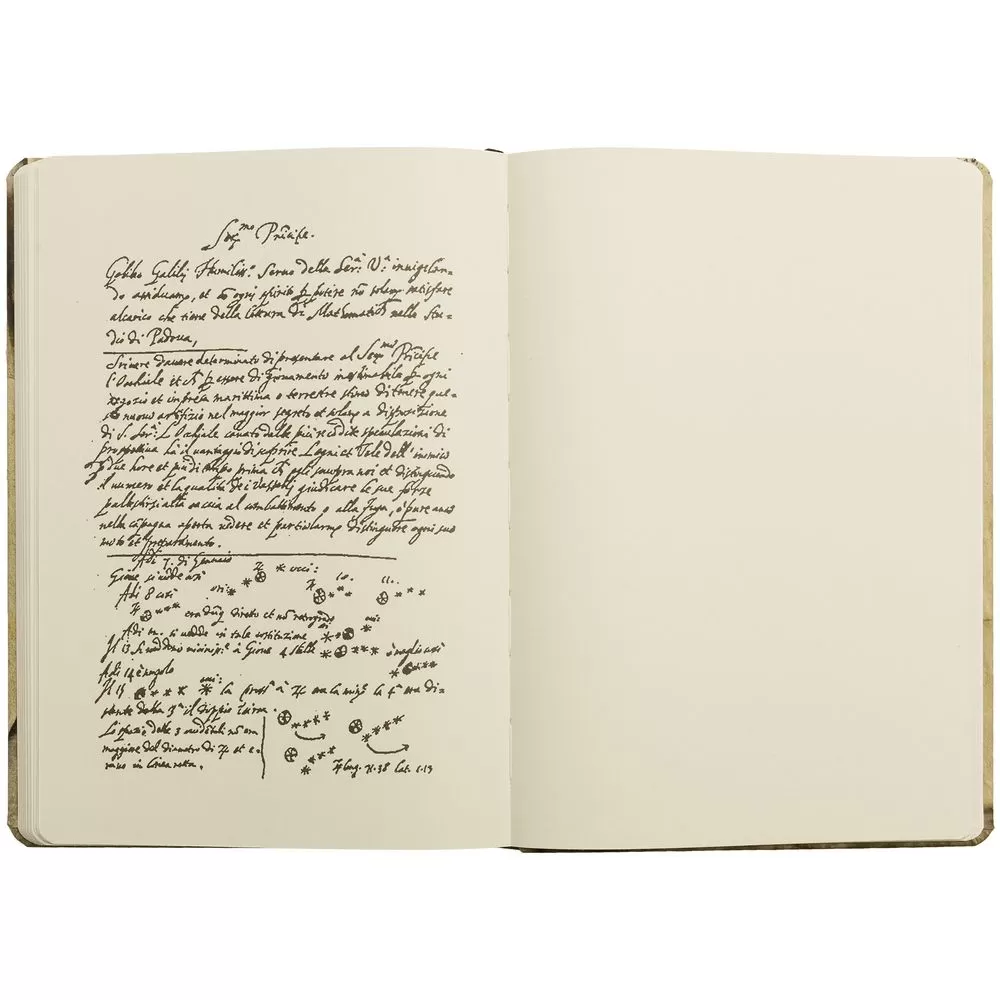 Ser.mo Principe.
Galileo Galilei Humiliss.o Servo della Ser.a V.a invigilan-
do assiduam.te, et cō ogni spirito p potere nō solam.te satisfare
alcarico che tiene della lettura di Mathematich nello Stu-
dio di Padova,
Scrivere d'avere determinato di presentare al Ser.mo Prīcipe
l'Occhiale et p essere di giovamento inestimabile p ogni
negozio et impresa marittima o terrestre stimo di tenere que-
sto nuovo artifizio nel maggior segreto et solam.te a disposizione
di S. Ser.a L'Occhiale cavato dalle più recōdite speculazioni di
prospettiva hà il vantaggio di scoprire Legni et Vele dell'inimico
p due hore et più di tempo prima ch egli scuopra noi et distinguendo
il numero et la qualità dei Vasselli giudicare le sue forze
pallestirsi alla caccia al combattimento o alla fuga, o pure anco
nella cāpagna aperta vedere et particolarm.te distinguere ogni suo
moto et preparamento.
Adi 7. di Gennaio
Giove si vede così occi:
Adi 8 così ori: 10. 11.
era dūq diretto et nō retrogrado
Adi 12. si vedde in tale costituzione occi:
Il 13 si veddono vicinis.e à Giove 4 stelle ò meglio così
Adi 14 è nugolo
Il 15 occi: la pross.a à ♃ era la min.e la 4.a era di-
stante dalla 3.a il doppio
Lo spazio delle 3 occidētali nō era
maggiore del diametro di ♃ et e-
rano in linea retta.
♃ long. 71.38 Lat. 1.13